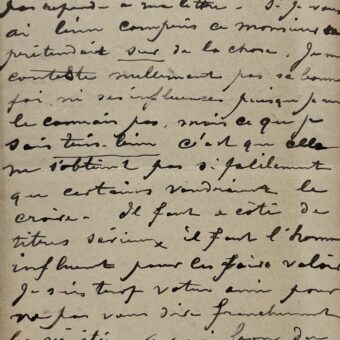 pas répondu a ma lettre. Si je vous
ai bien compris ce monsieur se
prétendait sur de la chose. Je ne
conteste nullement pas sa bonne
foi, ni ses influences puisque je ne
le connais pas, mais ce que je
sais très-bien c'est que cela
ne s'obtient pas si facilement
que certains voudraient le
croire. Il faut a coté de
titres sérieux il faut l'homme
influent pour les faire valoir
Je suis trop votre ami pour
ne pas vous dire franchement
la vérité